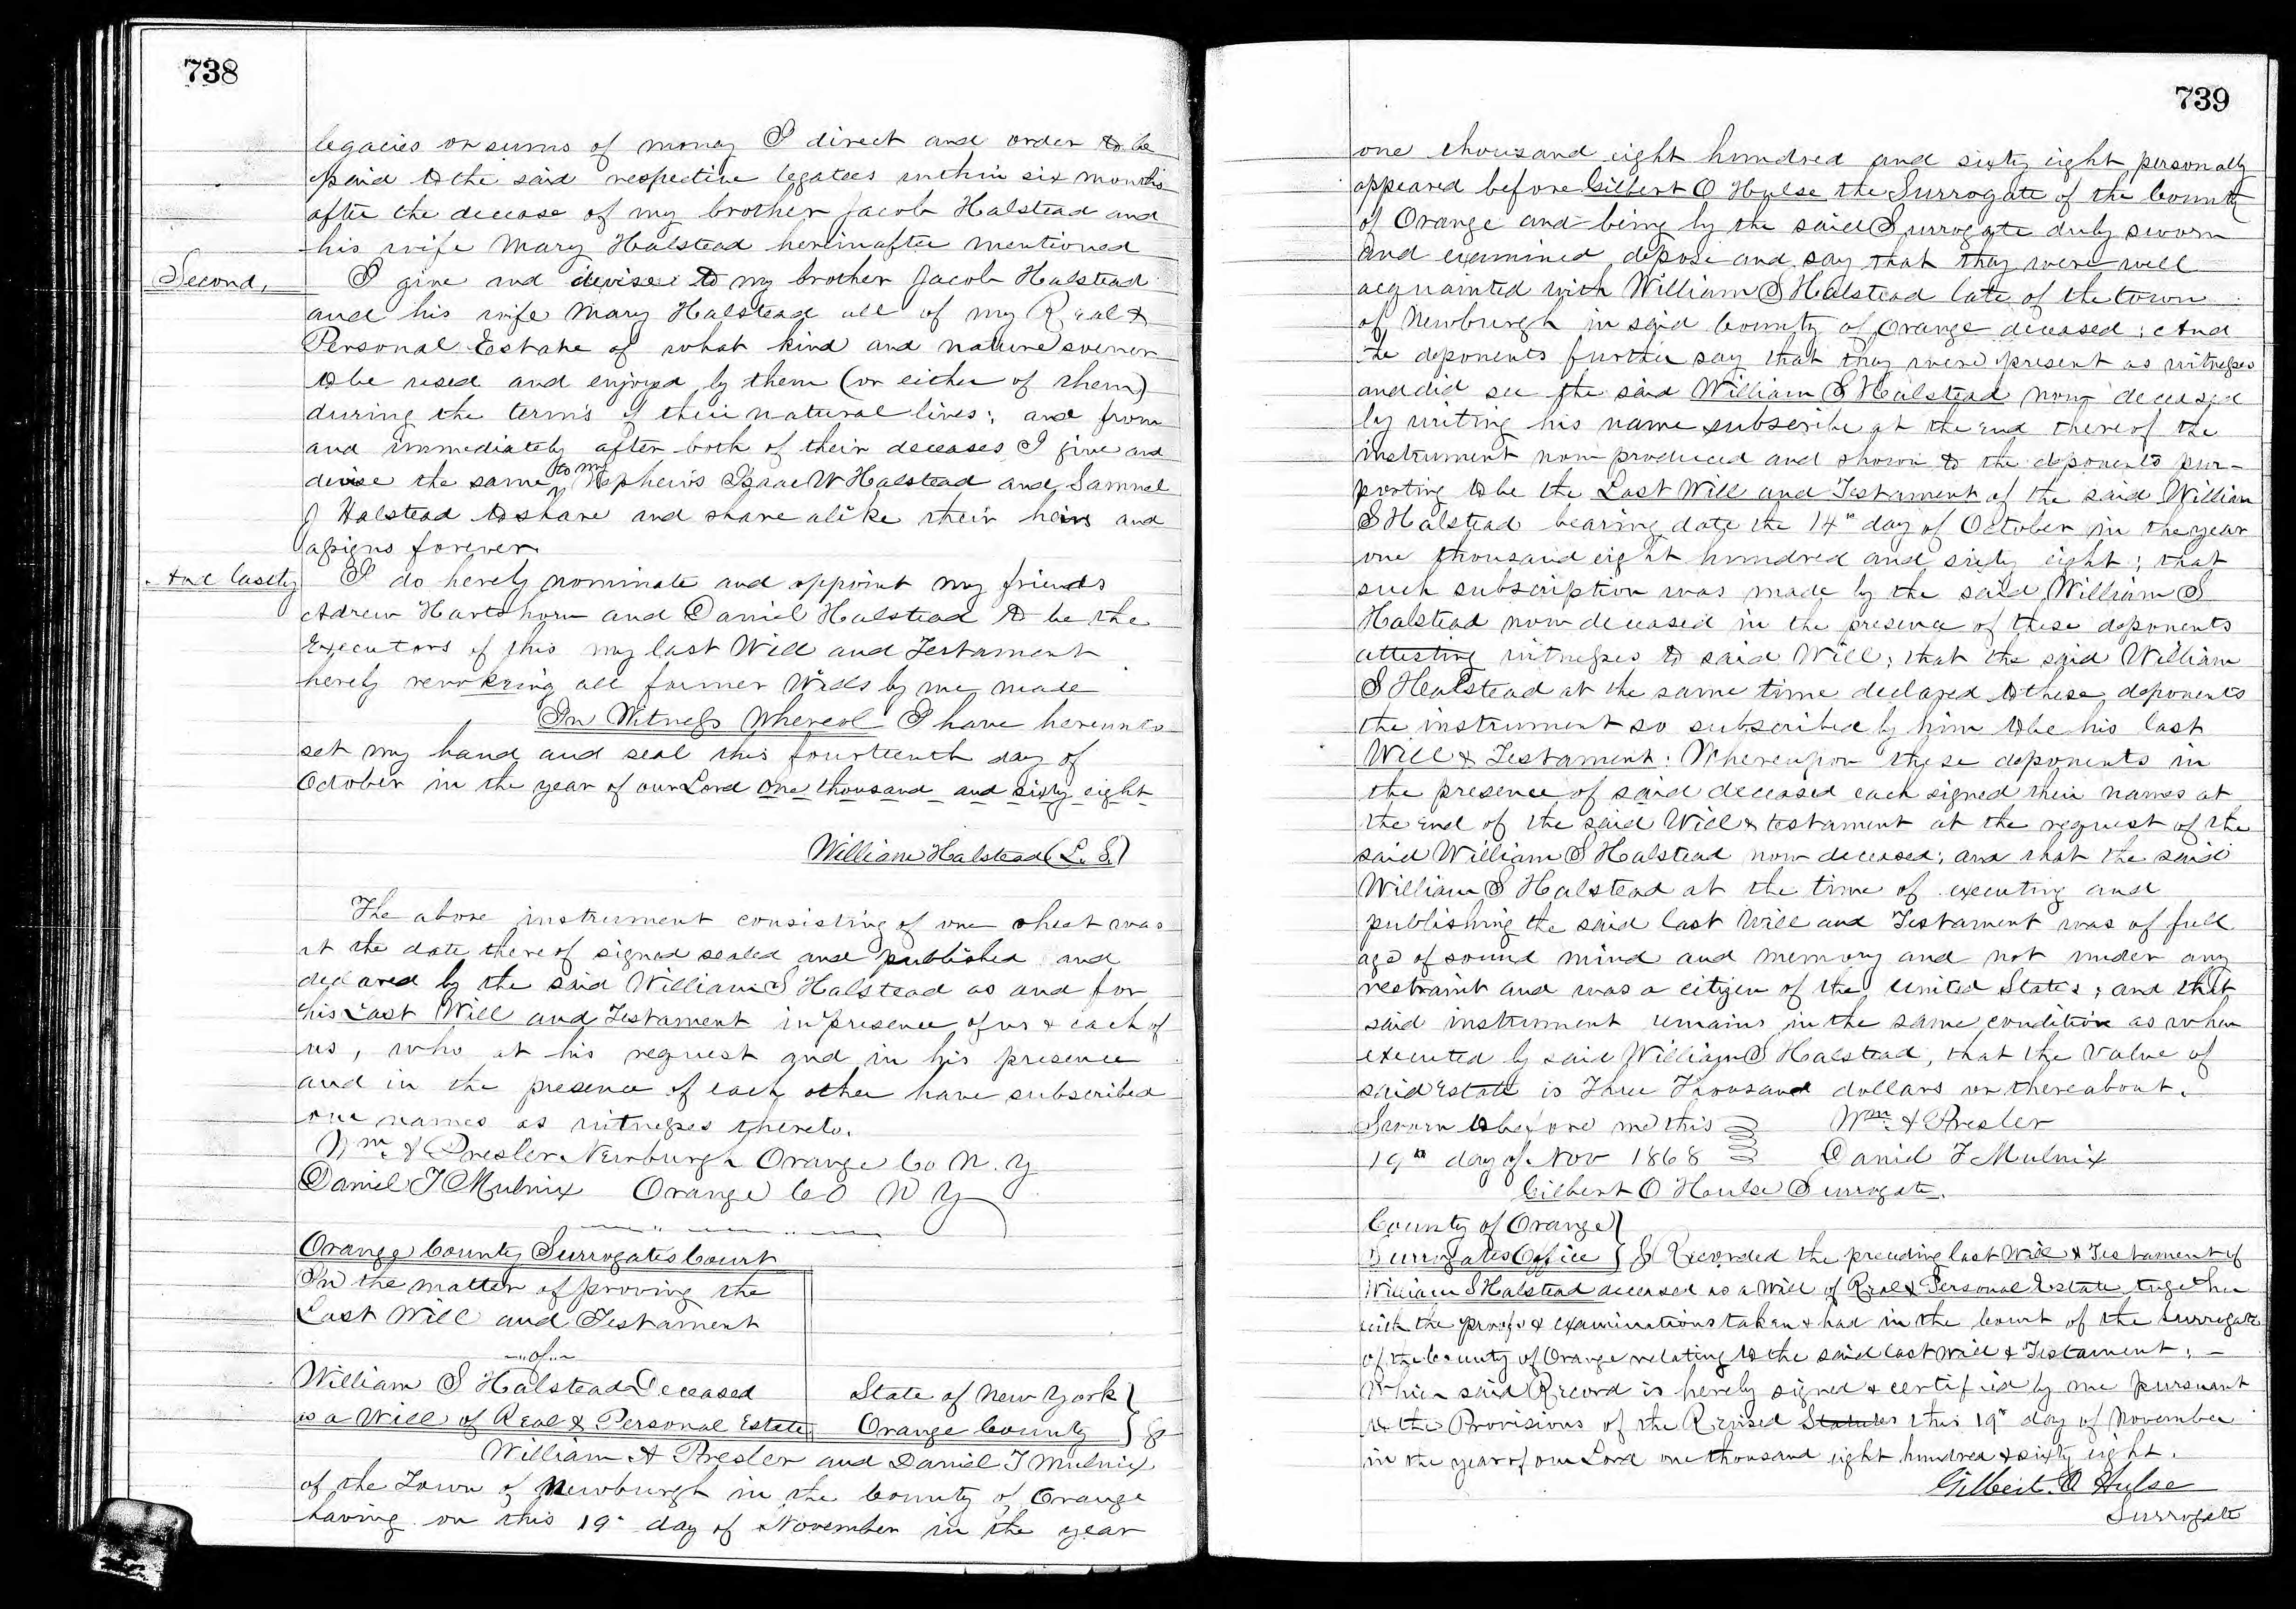 738
legacies or sums of money I direct and order to be
paid to the said respective legatees within six months
after the decease of my brother Jacob Halstead and
his wife Mary Halstead hereinafter mentioned
Second, I give and devise to my brother Jacob Halstead
and his wife Mary Halstead all of my Real &
Personal Estate of what kind and nature soever
to be used and enjoyed by them (or either of them)
during the terms of their natural lives; and from
and immediately after both of their deceases I give and
devise the same to my Nephews Isaac W Halstead and Samuel
J Halstead to share and share alike their heirs and
assigns forever.
And lastly I do hereby nominate and appoint my friends
Adrew Hartshorn and Daniel Halstead to be the
Executors of this my last Will and Testament
hereby revokeing all former Wills by me made
In Witness Whereof I have hereunto
set my hand and seal this fourteenth day of
October in the year of our Lord One thousand and sixty eight
William Halstead (L. S.)
The above instrument consisting of one sheet was
at the date thereof signed sealed and published and
declared by the said William S Halstead as and for
his Last Will and Testament in presence of us & each of
us, who at his request and in his presence
and in the presence of each other have subscribed
our names as witnesses thereto.
Wm A Presler Newburgh Orange Co N. Y
Daniel T Mulnix Orange Co N Y
Orange County Surrogates Court
In the matter of proving the
Last Will and Testament
of
William S Halstead Deceased State of New York
as a Will of Real & Personal Estate Orange County
William A Presler and Daniel T Mulnix
of the Town of Newburgh in the County of Orange
having on this 19th day of November in the year
739
one thousand eight hundred and sixty eight personally
appeared before Gilbert O Hulse the Surrogate of the County
of Orange and being by the said Surrogate duly sworn
and examined depose and say that they were well
acquainted with William S Halstead late of the town
of Newburgh in said County of Orange deceased; And
the deponents further say that they were present as witnesses
and did see the said William S Halstead now deceased
by writing his name subscribe at the end thereof the
instrument now produced and shown to the deponents pur-
porting to be the Last Will and Testament of the said William
S Halstead bearing date the 14th day of October in the year
one thousand eight hundred and sixty eight; that
such subscription was made by the said William S
Halstead now deceased in the presence of these deponents
attesting witnesses to said Will; that the said William
S Healstead at the same time declared to these deponents
the instrument so subscribed by him to be his last
Will & Testament: Whereupon these deponents in
the presence of said deceased each signed their names at
the end of the said Will & testament at the request of the
said William S Halstead now deceased; and that the said
William S Halstead at the time of executing and
publishing the said last Will and Testament was of full
age of sound mind and memory and not under any
restraint and was a citizen of the United States; and that
said instrument remains in the same condition as when
executed by said William S Halstead, that the Value of
said Estate is Three Thousand dollars or thereabout.
Sworn to before me this Wm A Presler
19th day of Nov 1868 Daniel T Mulnix
Gilbert O Hulse Surrogate.
County of Orange
Surrogates Office Recorded the preceding last Will & Testament of
William S Halstead deceased as a Will of Real & Personal Estate together
with the proofs & examinations taken & had in the Court of the Surrogate
of the County of Orange relating to the said last Will & Testament; -
Which said Record is hereby signed & certified by me pursuant
to the Provisions of the Revised Statutes this 19th day of November
in the year of our Lord one thousand eight hundred & sixty eight.
Gilbert O Hulse
Surrogate